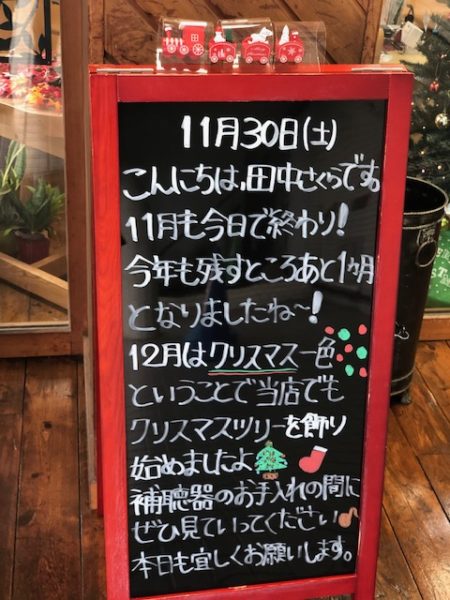 11月30日(土)
こんにちは、田中さくらです。
11月も今日で終わり!
今年も残すところあと1ヶ月
となりましたね〜!
12月はクリスマス一色
ということで当店でも
クリスマスツリーを飾り
始めましたよ
補聴器のお手入れの間に
ぜひ見ていってください
本日も宜しくお願いします。